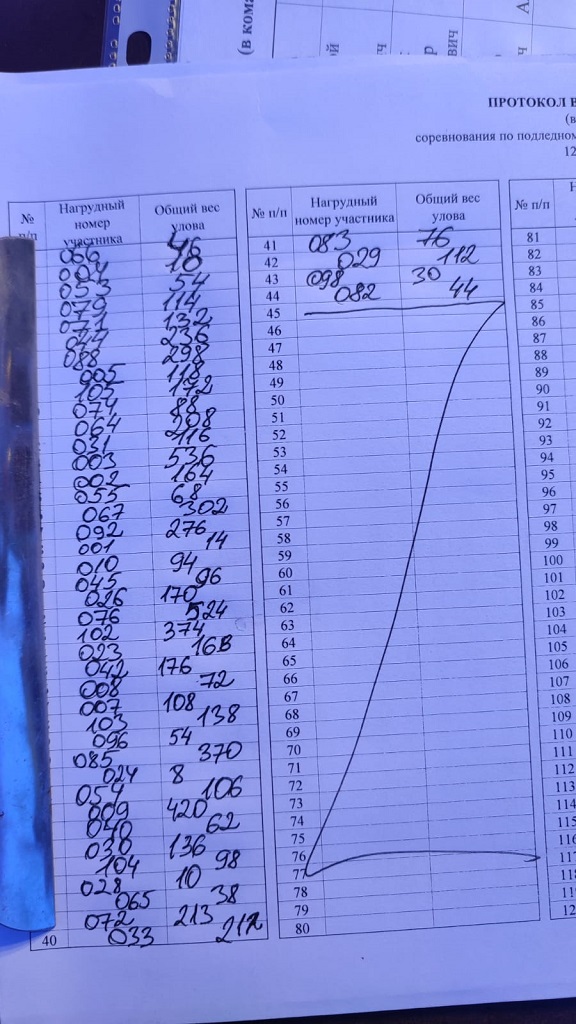 (в кома
ой
ич
р
вич
ч
А
ПРОТОКОЛ В
(в
соревнования по подледном
12
№ п/п
Нагрудный номер участника
Общий вес улова
№ п/п
Нагрудный номер участника
Общий вес улова
№ п/п
066 46
004 18
053 54
079 114
071 132
044 236
088 298
005 118
105 172
074 88
064 208
031 416
003 536
002 164
055 68
067 302
092 276
001 14
010 94
045 96
026 170
076 524
102 374
023 168
042 176
008 72
007 108
103 138
096 54
085 370
024 8
054 106
009 420
040 62
030 136
104 98
028 10
065 38
072 213
40 033 212
41 083 76
42 029 112
43 098 30
44 082 44
45
46
47
48
49
50
51
52
53
54
55
56
57
58
59
60
61
62
63
64
65
66
67
68
69
70
71
72
73
74
75
76
77
78
79
80
81
82
83
84
85
86
87
88
89
90
91
92
93
94
95
96
97
98
99
100
101
102
103
104
105
106
107
108
109
110
111
112
113
114
115
116
117
118
119
12